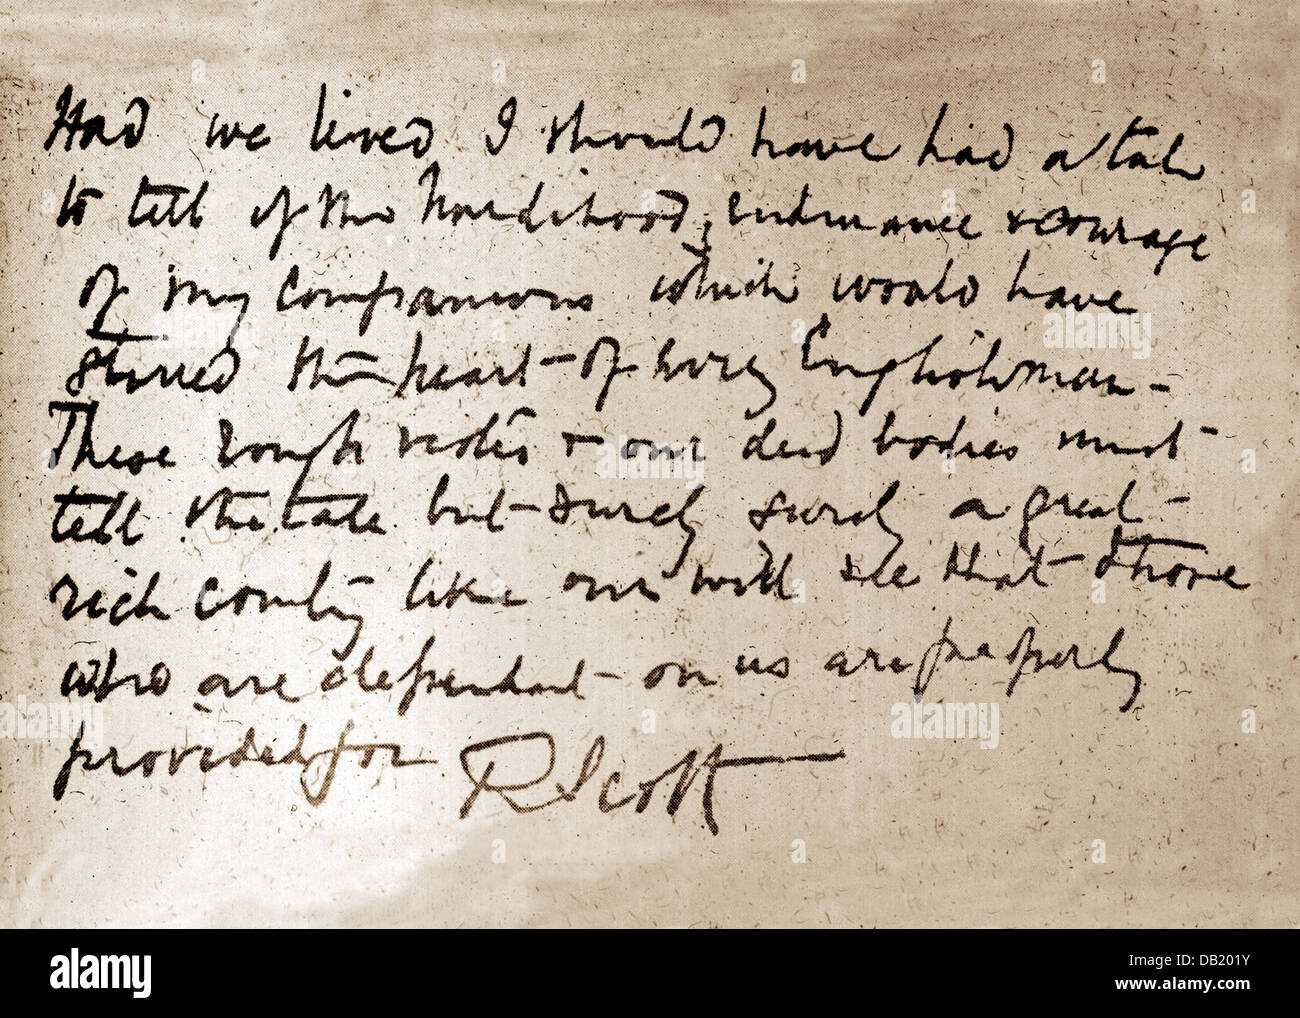 Had we lived I should have had a tale
to tell of the hardihood, endurance & courage
of my companions which would have
stirred the heart of every Englishman -
These rough notes & our dead bodies must
tell the tale but surely surely a great
rich country like our will see that those
who are dependent on us are properly
provided for R Scott
a alamy stock photo
DB201Y
www.alamy.com